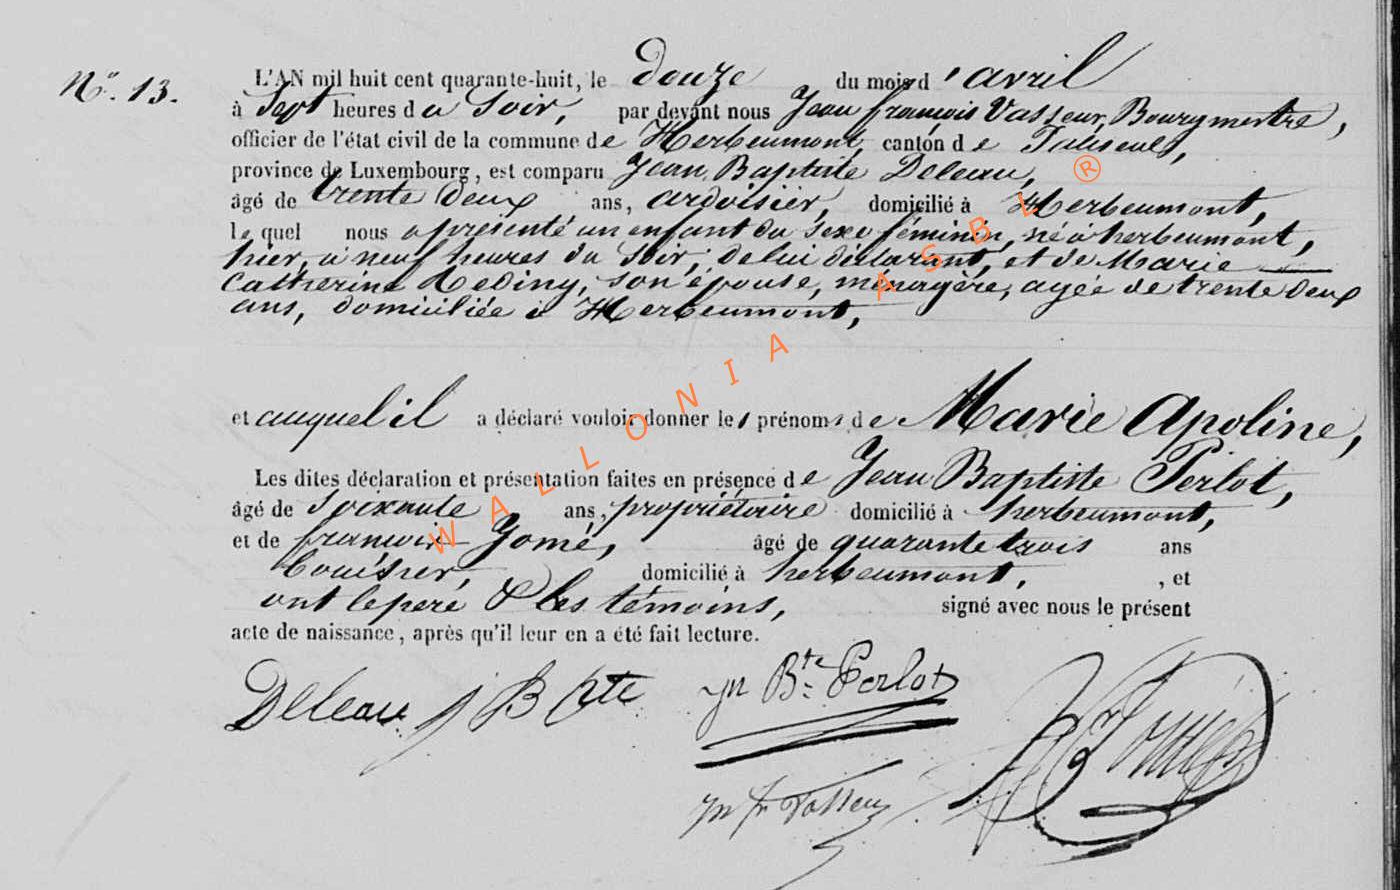 N.º 13.
L'AN mil huit cent quarante-huit, le douze du mois d'avril
à Sept heures du Soir, par devant nous Jean françois Vasseur, Bourgmestre,
officier de l'état civil de la commune de Herbeumont, canton de Paliseul,
province de Luxembourg, est comparu Jean Baptiste Deleau,
âgé de trente Deux ans, ardoisier, domicilié à Herbeumont,
le quel nous a présenté un enfant du sexe féminin, né à herbeumont,
hier, à neuf heures du Soir, de lui déclarant, et de Marie
Catherine Mediny, son épouse, ménagère, agée de trente Deux
ans, domiciliée à Herbeumont,
et auquel il a déclaré vouloir donner les prénoms de Marie Apoline,
Les dites déclaration et présentation faites en présence de Jean Baptiste Perlot,
âgé de soixante ans, propriétaire domicilié à herbeumont,
et de françois Jomé, âgé de quarante trois ans
domicilié à herbeumont, , et
ont le peré & les témoins, signé avec nous le présent
acte de naissance, après qu'il leur en a été fait lecture.
Deleau j B pte
jn Bte: Perlot
jn fr Vasseur
WALLONIA ASBL ®